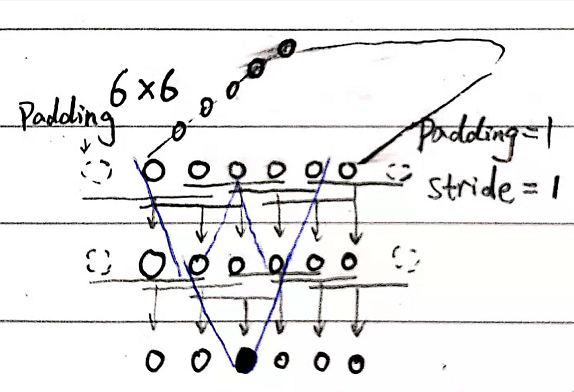 6×6
Padding
Padding=1
Stride = 1